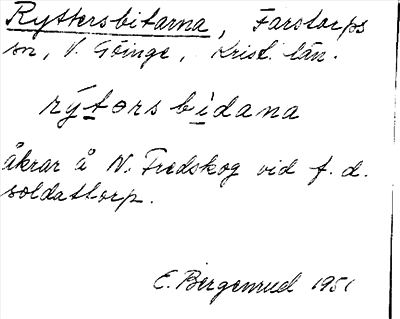 Ryttersbitarna, Farstorps
sn, V. Göinge, Krist. län.
rýtərs bìdana
åkrar å N. Fredskog vid f. d.
soldattorp.
E. Bergenrud 1951